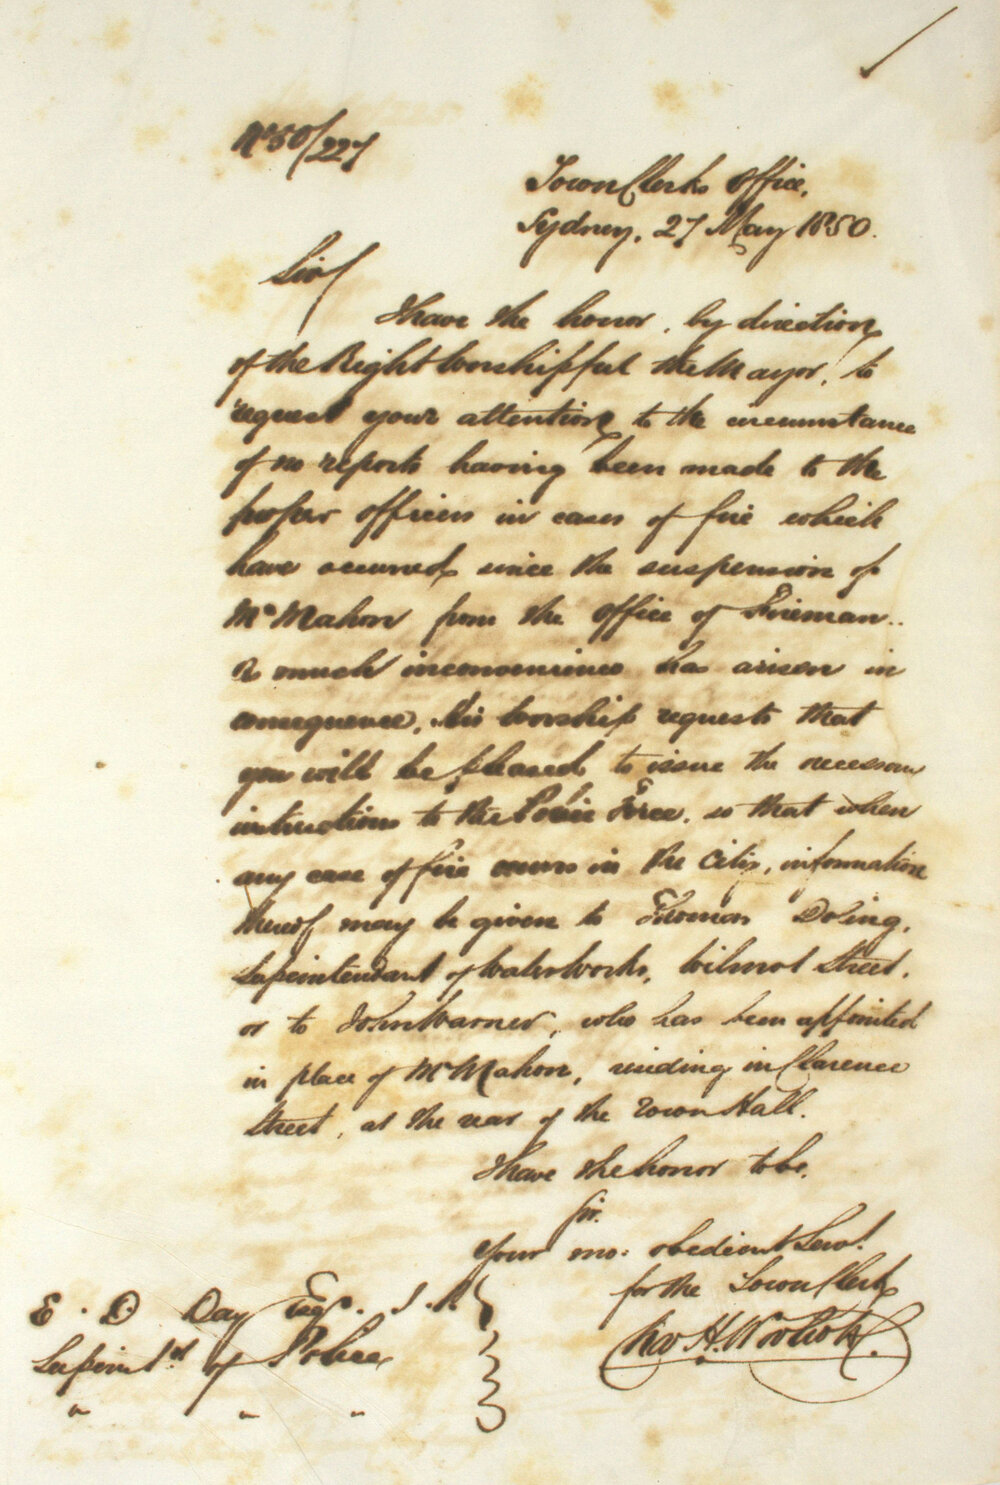 No 50/227
Town Clerks Office,
Sydney, 27 May 1850.
Sir
I have the honor, by direction
of the Right Worshipful the Mayor, to
request your attention to the circumstance
of no reports having been made to the
proper officers in cases of fire which
have occurred since the suspension of
McMahon from the office of Fireman..
& much inconvenience has arisen in
consequence. His Worship requests that
you will be pleased to issue the necessary
instructions to the Police Force, so that when
any case of fire occurs in the City, information
thereof may be given to Thomas Doling,
Superintendant of Waterworks, Wilmot Street,
or to John Warner, who has been appointed
in place of McMahon, residing in Clarence
Street, at the rear of the Town Hall.
I have the honor to be,
Sir.
Your mo: obedient Servt.
for the Town Clerk
H.
E. D. Day Esqr. J.P.
Superintdt of Police
" " "